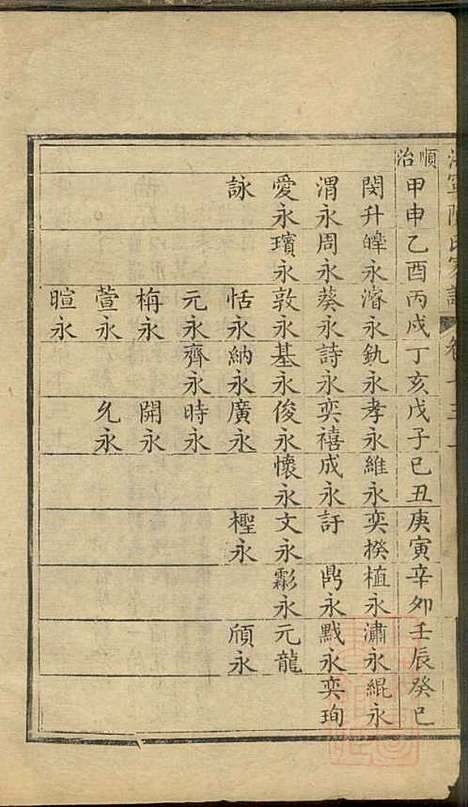 海寧陳氏家譜
順治
甲申乙酉丙戌丁亥戊子己丑庚寅辛卯壬辰癸巳
閔升皡永濬永釚永孝永維永奕揆植永潚永緄永
渭永周永葵永詩永奕禧成永訏鼎永戭永奕珣
愛永璸永敦永基永俊永懷永文永彩永元龍
詠恬永納永廣永檉永頎永
元永齊永時永
栴永開永
萱永允永
暄永